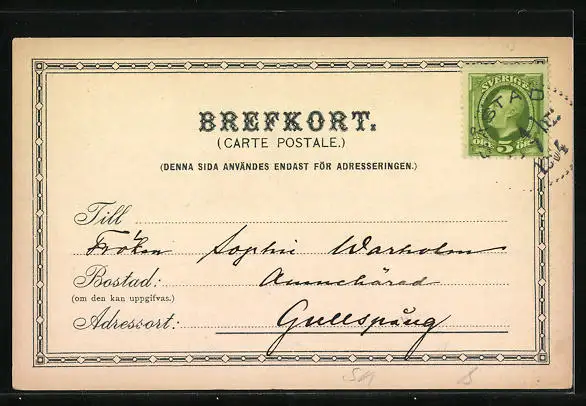 SVERIGE
5
ÖRE ÖRE
BREFKORT.
(CARTE POSTALE.)
(DENNA SIDA ANVÄNDES ENDAST FÖR ADRESSERINGEN.)
Till
Fröken Sophie Warholm
Bostad: Amnehärad
(om den kan uppgifvas.)
Adressort: Gullspång